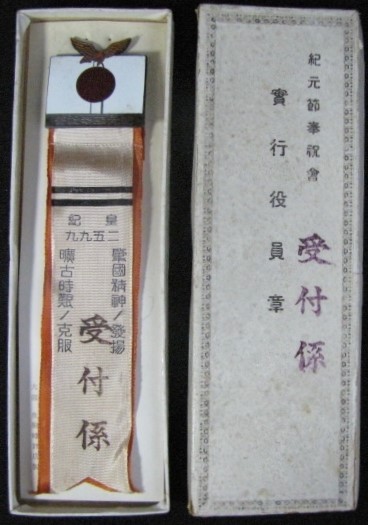 紀元節奉祝會
實行役員章
受付係
皇紀
二五九九
肇國精神ノ發揚
曠古時艱ノ克服
受付係